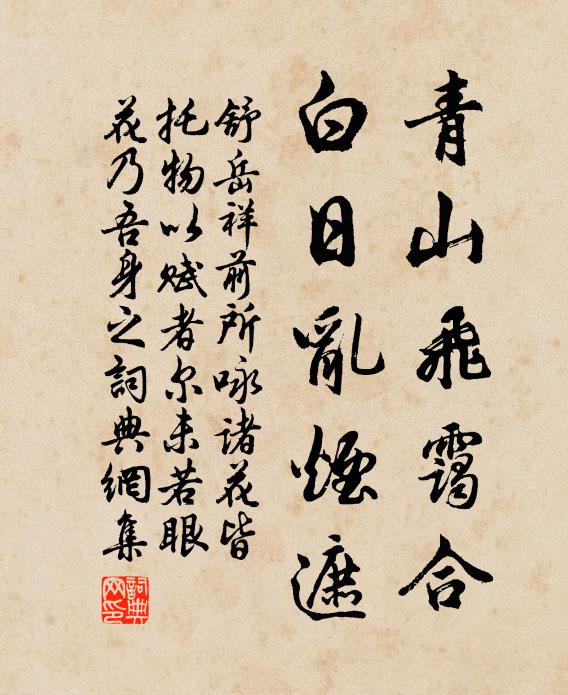 青山飛靄合
白日亂煙遮
舒岳祥前所咏諸花皆
托物以賦者尔未若眼
花乃吾身之詞典網集
詞典網印